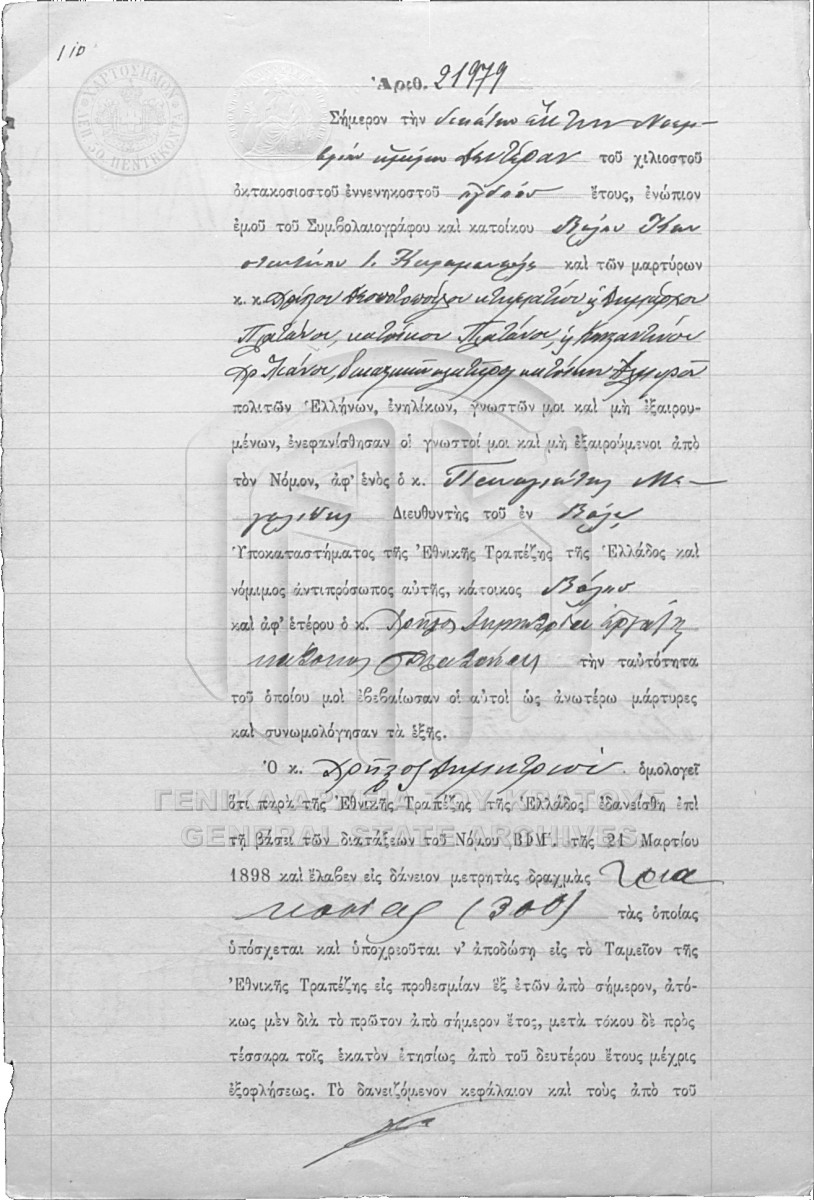 110
ΧΑΡΤΟΣΗΜΟΝ
ΛΕΠ. 50. ΠΕΝΤΗΚΟΝΤΑ
Ἀριθ. 21979
Σήμερον τὴν δεκάτην ἕκτην Νοεμ-
βρίου ἡμέραν Δευτέραν τοῦ χιλιοστοῦ
ὀκτακοσιοστοῦ ἐννενηκοστοῦ ὀγδόου ἔτους, ἐνώπιον
ἐμοῦ τοῦ Συμβολαιογράφου καὶ κατοίκου Βόλου Κων
σταντίνου Ι. καὶ τῶν μαρτύρων
κ. κ. Δεσποτοπούλου κτηματίου
Πλατάνου, κατοίκου Πλατάνου,
δικαστικοῦ κλητῆρος κατοίκου Ἁλμυροῦ
πολιτῶν Ἑλλήνων, ἐνηλίκων, γνωστῶν μοι καὶ μὴ ἐξαιρου-
μένων, ἐνεφανίσθησαν οἱ γνωστοί μοι καὶ μὴ ἐξαιρούμενοι ἀπὸ
τὸν Νόμον, ἀφ' ἑνὸς ὁ κ. Παναγιώτης
Διευθυντὴς τοῦ ἐν Βόλῳ
Ὑποκαταστήματος τῆς Ἐθνικῆς Τραπέζης τῆς Ἑλλάδος καὶ
νόμιμος ἀντιπρόσωπος αὐτῆς, κάτοικος Βόλου
καὶ ἀφ' ἑτέρου ὁ κ. Χρῆστος Δημητρίου ἐργάτης
κάτοικος Πλατάνου τὴν ταὐτότητα
τοῦ ὁποίου μοὶ ἐβεβαίωσαν οἱ αὐτοὶ ὡς ἀνωτέρω μάρτυρες
καὶ συνωμολόγησαν τὰ ἑξῆς.
Ὁ κ. Χρῆστος Δημητρίου ὁμολογεῖ
ΓΕΝΙΚΑ ΑΡΧΕΙΑ ΤΟΥ ΚΡΑΤΟΥΣ
ὅτι παρὰ τῆς Ἐθνικῆς Τραπέζης τῆς Ἑλλάδος ἐδανείσθη ἐπὶ
GENERAL STATE ARCHIVES
τῇ βάσει τῶν διατάξεων τοῦ Νόμου ΒΦΜ'. τῆς 21 Μαρτίου
1898 καὶ ἔλαβεν εἰς δάνειον μετρητὰς δραχμὰς τρια
κοσίας (300) τὰς ὁποίας
ὑπόσχεται καὶ ὑποχρεοῦται ν' ἀποδώσῃ εἰς τὸ Ταμεῖον τῆς
Ἐθνικῆς Τραπέζης εἰς προθεσμίαν ἓξ ἐτῶν ἀπὸ σήμερον, ἀτό-
κως μὲν διὰ τὸ πρῶτον ἀπὸ σήμερον ἔτος, μετὰ τόκου δὲ πρὸς
τέσσαρα τοῖς ἑκατὸν ἐτησίως ἀπὸ τοῦ δευτέρου ἔτους μέχρις
ἐξοφλήσεως. Τὸ δανειζόμενον κεφάλαιον καὶ τοὺς ἀπὸ τοῦ